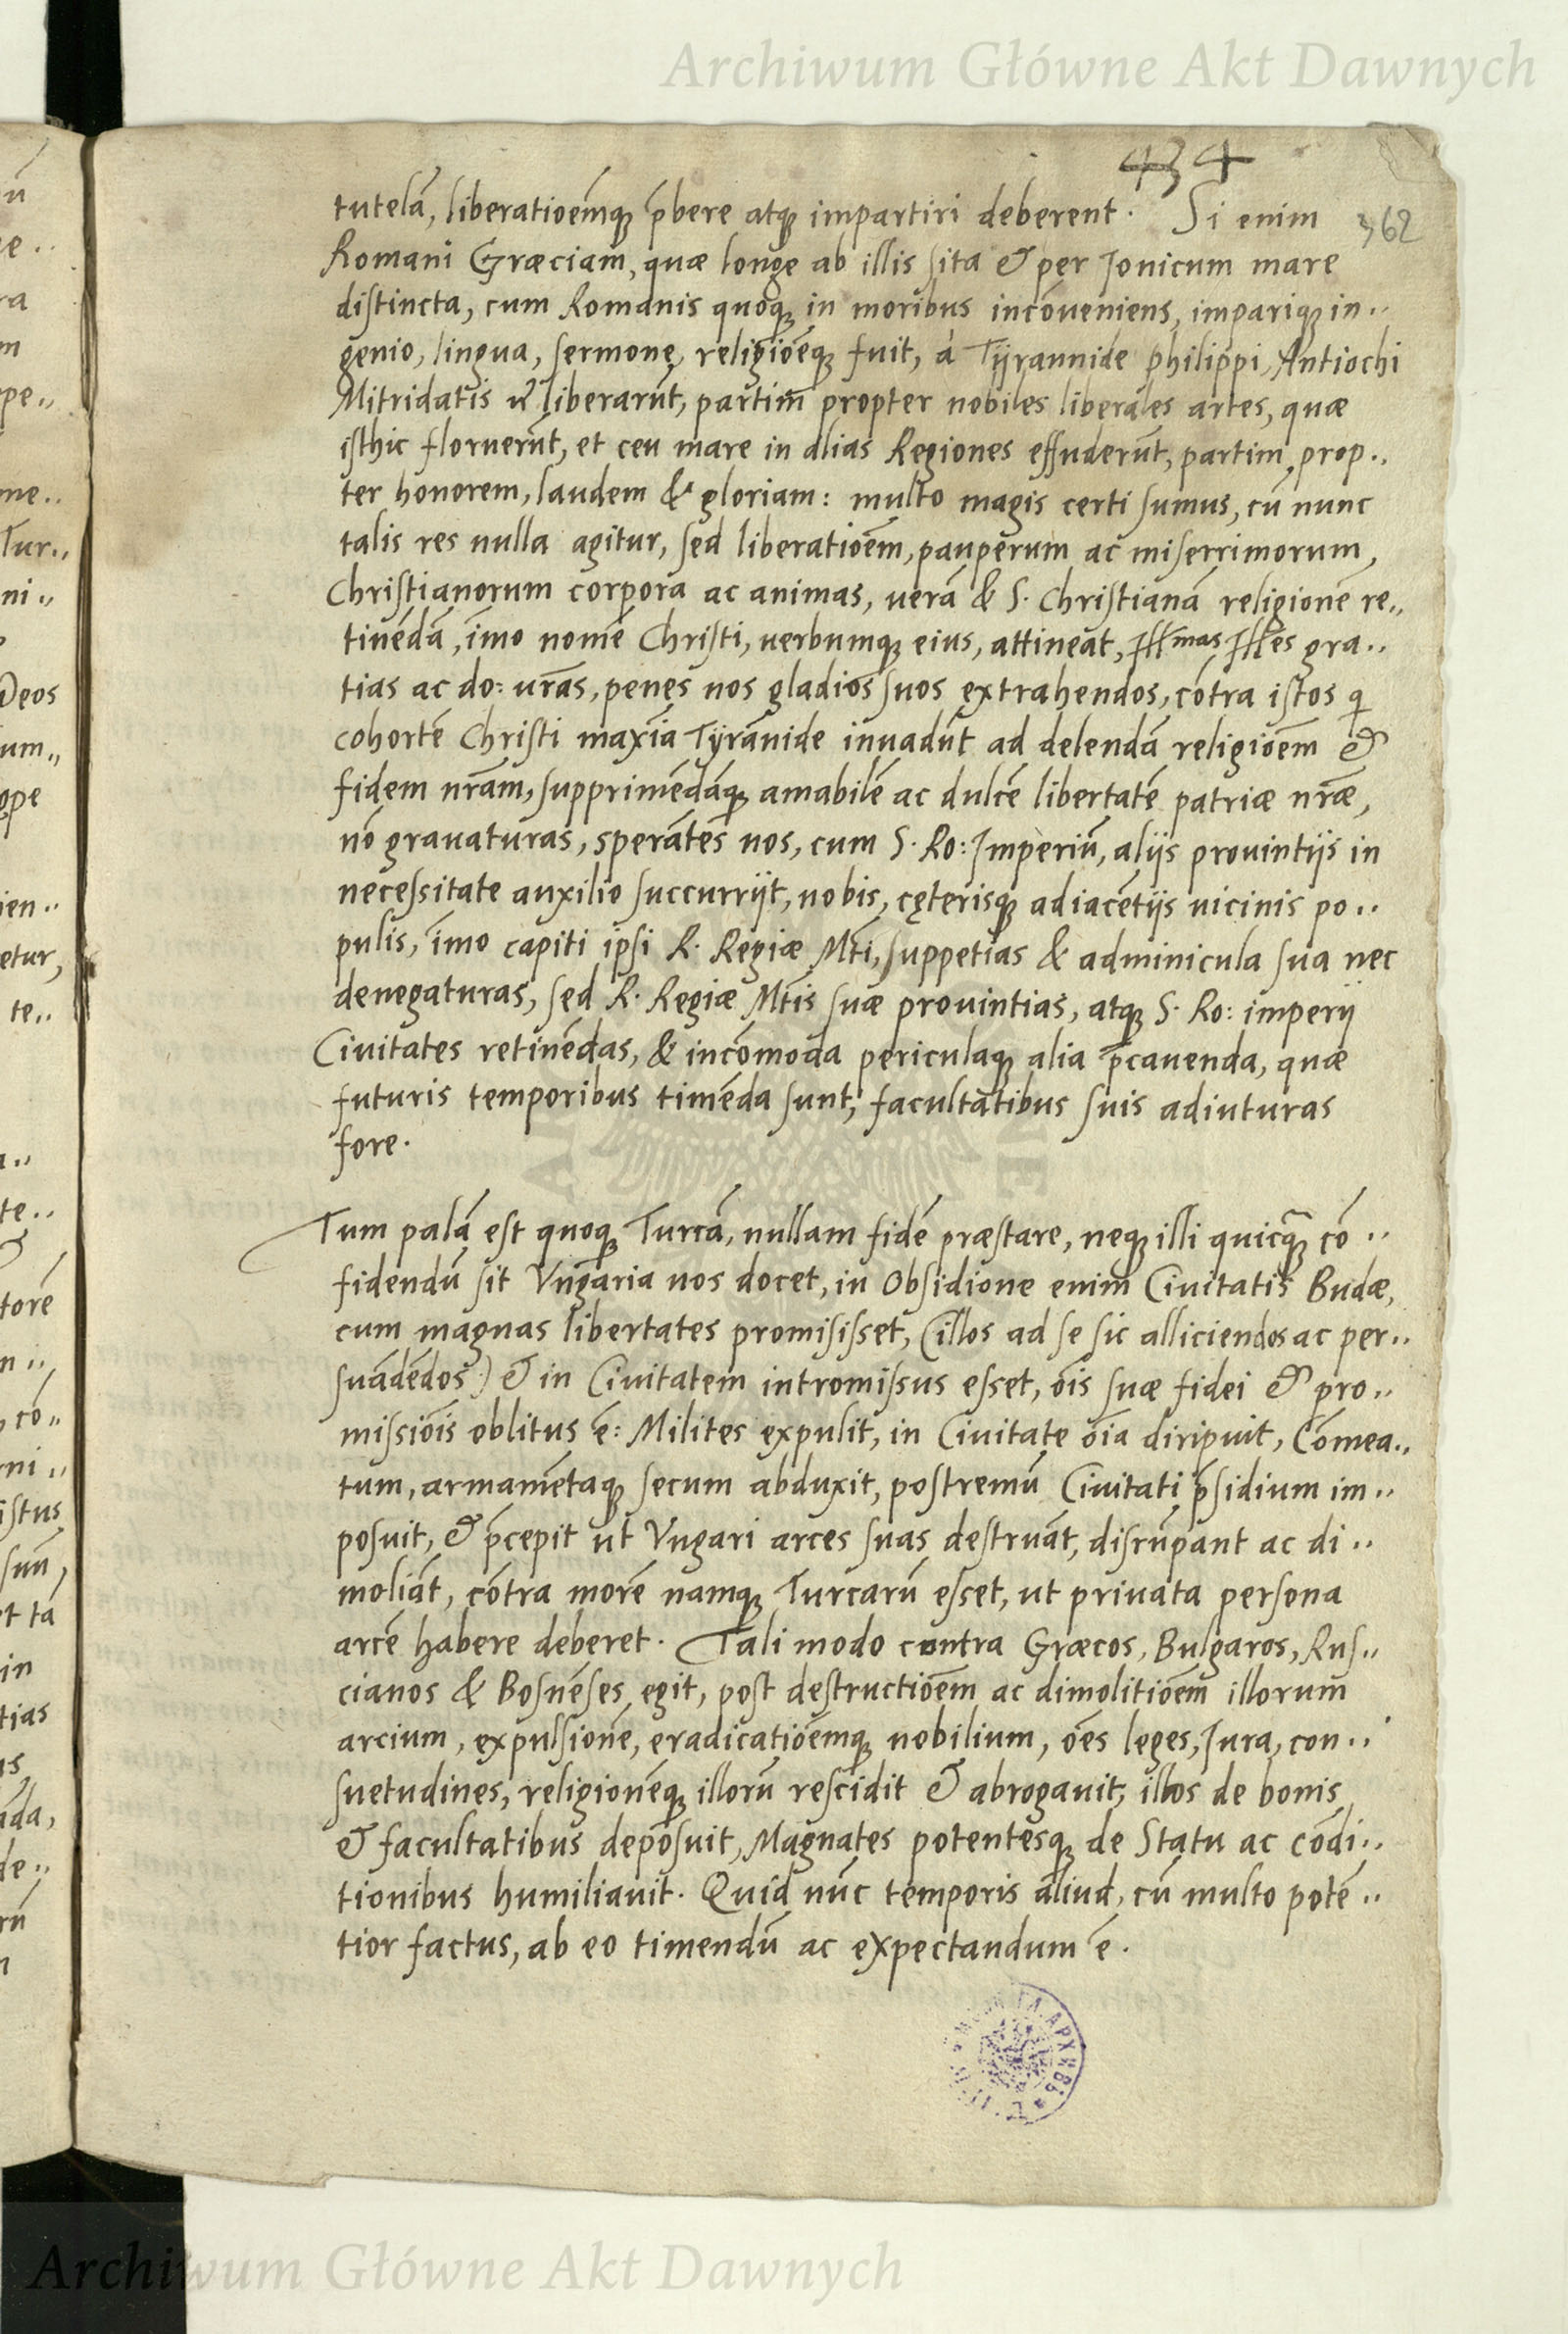 Archiwum Główne Akt Dawnych
434
362
tutelā, liberatioēmq; p̄bere atq; impartiri deberent. Si enim
Romani Græciam, quæ longe ab illis sita & per Jonicum mare
distincta, cum Romanis quoq; in moribus incōueniens, impariq; in..
genio, lingua, sermone, religiōeq; fuit, à Tyrannide philippi, Antiochi
Mitridatis liberarūt, partim propter nobiles liberales artes, quæ
isthic floruerūt, et ceu mare in alias Regiones effuderūt, partim, prop..
ter honorem, laudem & gloriam: multo magis certi sumus, cū nunc
talis res nulla agitur, sed liberatiōem, pauperum ac miserrimorum,
Christianorum corpora ac animas, uerā & S. Christianā religionē re..
tinēdā, īmo nomē Christi, uerbumq; eius, attineat, Illmas Illes gra..
tias ac do: urās, penes nos gladios suos extrahendos, cōtra istos q
cohortē Christi maxīa Tyrānide inuadūt ad delendā religiōem &
fidem nrām, supprimēdāq; amabilē ac dulcē libertatē patriæ nrāe,
nō grauaturas, sperātes nos, cum S. Ro: Imperiū, aliis prouintijs in
necessitate auxilio succurrijt, nobis, cęterisq; adiacētijs uicinis po..
pulis, īmo capiti ipsi R. Regiæ Mti, suppetias & adminicula sua nec
denegaturas, sed R. Regiæ Mtis suæ prouintias, atq; S. Ro: imperij
Ciuitates retinēdas, & incōmoda periculaq; alia p̄cauenda, quæ
futuris temporibus timēda sunt, facultatibus suis adiuturas
fore.
Tum palā est quoq; Turcā, nullam fidē præstare, neq; illi quicq̄ cō..
fidendū sit Vngaria nos docet, in Obsidione enim Ciuitatis Budæ,
cum magnas libertates promisisset, (illos ad se sic alliciendos ac per..
suādēdos) & in Ciuitatem intromissus esset, ōis suæ fidei & pro..
missiōis oblitus ē: Milites expulit, in Ciuitate ōia diripuit, Cōmea..
tum, armamētaq; secum abduxit, postremū Ciuitati p̄sidium im..
posuit, & p̄cepit ut Vngari arces suas destruāt, disrūpant ac di..
moliāt, cōtra morē namq; Turcarū esset, ut priuata persona
arcē habere deberet. Tali modo contra Græcos, Bulgaros, Rus..
cianos & Bosnēses egit, post destructiōem ac dimolitiōem illorum
arcium, expulsionē, eradicatiōemq; nobilium, ōes leges, Jura, con..
suetudines, religionēq; illorū rescidit & abrogauit, illos de bonis
& facultatibus deposuit, Magnates potentesq; de Statu ac cōdi..
tionibus humiliauit. Quid nūc temporis aliud, cū multo potē..
tior factus, ab eo timendū ac expectandum ē.
Archiwum Główne Akt Dawnych